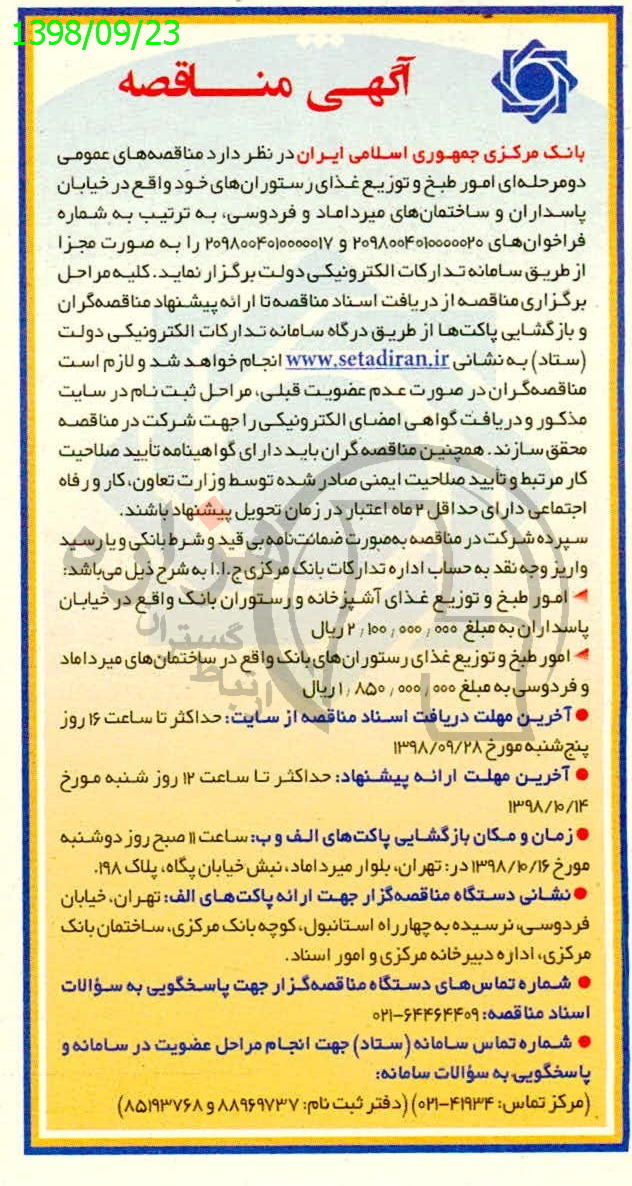 1398/09/23
آگهی مناقصه
بانک مرکزی جمهوری اسلامی ایران در نظر دارد مناقصه‌های عمومی
دومرحله‌ای امور طبخ و توزیع غذای رستوران‌های خود واقع در خیابان
پاسداران و ساختمان‌های میرداماد و فردوسی، به ترتیب به شماره
فراخوان‌های ۲۰۹۸۰۰۴۰۱۰۰۰۰۰۲۰ و ۲۰۹۸۰۰۴۰۱۰۰۰۰۰۱۷ را به صورت مجزا
از طریق سامانه تدارکات الکترونیکی دولت برگزار نماید. کلیه مراحل
برگزاری مناقصه از دریافت اسناد مناقصه تا ارائه پیشنهاد مناقصه‌گران
و بازگشایی پاکت‌ها از طریق درگاه سامانه تدارکات الکترونیکی دولت
(ستاد) به نشانی www.setadiran.ir انجام خواهد شد و لازم است
مناقصه‌گران در صورت عدم عضویت قبلی، مراحل ثبت نام در سایت
مذکور و دریافت گواهی امضای الکترونیکی را جهت شرکت در مناقصه
محقق سازند. همچنین مناقصه گران باید دارای گواهینامه تأیید صلاحیت
کار مرتبط و تأیید صلاحیت ایمنی صادر شده توسط وزارت تعاون، کار و رفاه
اجتماعی دارای حداقل ۲ ماه اعتبار در زمان تحویل پیشنهاد باشند.
سپرده شرکت در مناقصه به‌صورت ضمانت‌نامه بی قید و شرط بانکی و یا رسید
واریز وجه نقد به حساب اداره تدارکات بانک مرکزی ج.ا.ا به شرح ذیل می‌باشد:
امور طبخ و توزیع غذای آشپزخانه و رستوران بانک واقع در خیابان
پاسداران به مبلغ ۲٫۱۰۰٫۰۰۰٫۰۰۰ ریال
امور طبخ و توزیع غذای رستوران‌های بانک واقع در ساختمان‌های میرداماد
و فردوسی به مبلغ ۱٫۸۵۰٫۰۰۰٫۰۰۰ ریال
● آخرین مهلت دریافت اسناد مناقصه از سایت: حداکثر تا ساعت ۱۶ روز
پنج‌شنبه مورخ ۱۳۹۸/۰۹/۲۸
● آخرین مهلت ارائه پیشنهاد: حداکثر تا ساعت ۱۲ روز شنبه مورخ
۱۳۹۸/۱۰/۱۴
● زمان و مکان بازگشایی پاکت‌های الف و ب: ساعت ۱۱ صبح روز دوشنبه
مورخ ۱۳۹۸/۱۰/۱۶ در: تهران، بلوار میرداماد، نبش خیابان پگاه، پلاک ۱۹۸.
● نشانی دستگاه مناقصه‌گزار جهت ارائه پاکت‌های الف: تهران، خیابان
فردوسی، نرسیده به چهارراه استانبول، کوچه بانک مرکزی، ساختمان بانک
مرکزی، اداره دبیرخانه مرکزی و امور اسناد.
● شماره تماس‌های دستگاه مناقصه‌گزار جهت پاسخگویی به سؤالات
اسناد مناقصه: ۶۴۴۶۴۴۰۹-۰۲۱
● شماره تماس سامانه (ستاد) جهت انجام مراحل عضویت در سامانه و
پاسخگویی به سؤالات سامانه:
(مرکز تماس: ۴۱۹۳۴-۰۲۱) (دفتر ثبت نام: ۸۸۹۶۹۷۳۷ و ۸۵۱۹۳۷۶۸)
هزاره
گستران
ارتباط